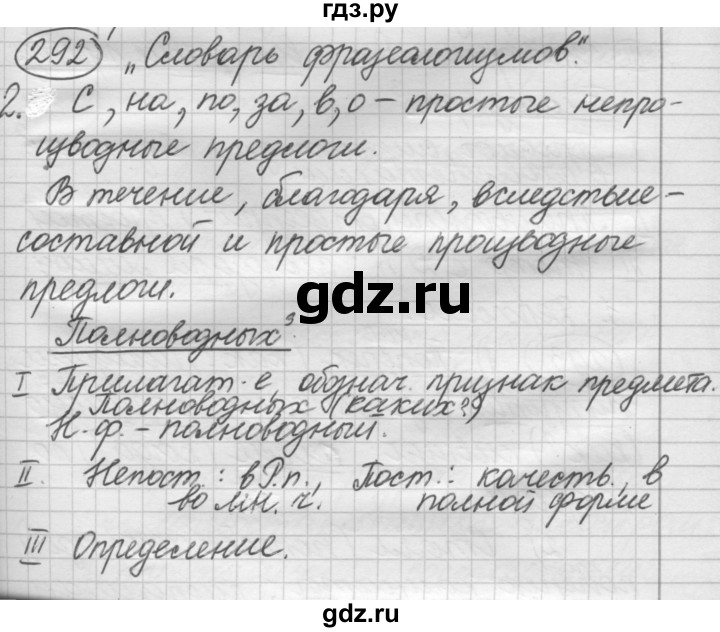 гдз.ру
292 „Словарь фразеологизмов“.
2. С, на, по, за, в, о – простые непро-
изводные предлоги.
В течение, благодаря, вследствие –
составной и простые производные
предлоги.
Полноводных³
I Прилагат-е, обознач. признак предмета.
полноводных (каких?)
Н.ф. – полноводный.
II. Непост.: в Р.п., Пост.: качеств., в
во мн.ч. полной форме
III Определение.
gdz.ru
gdz.ru